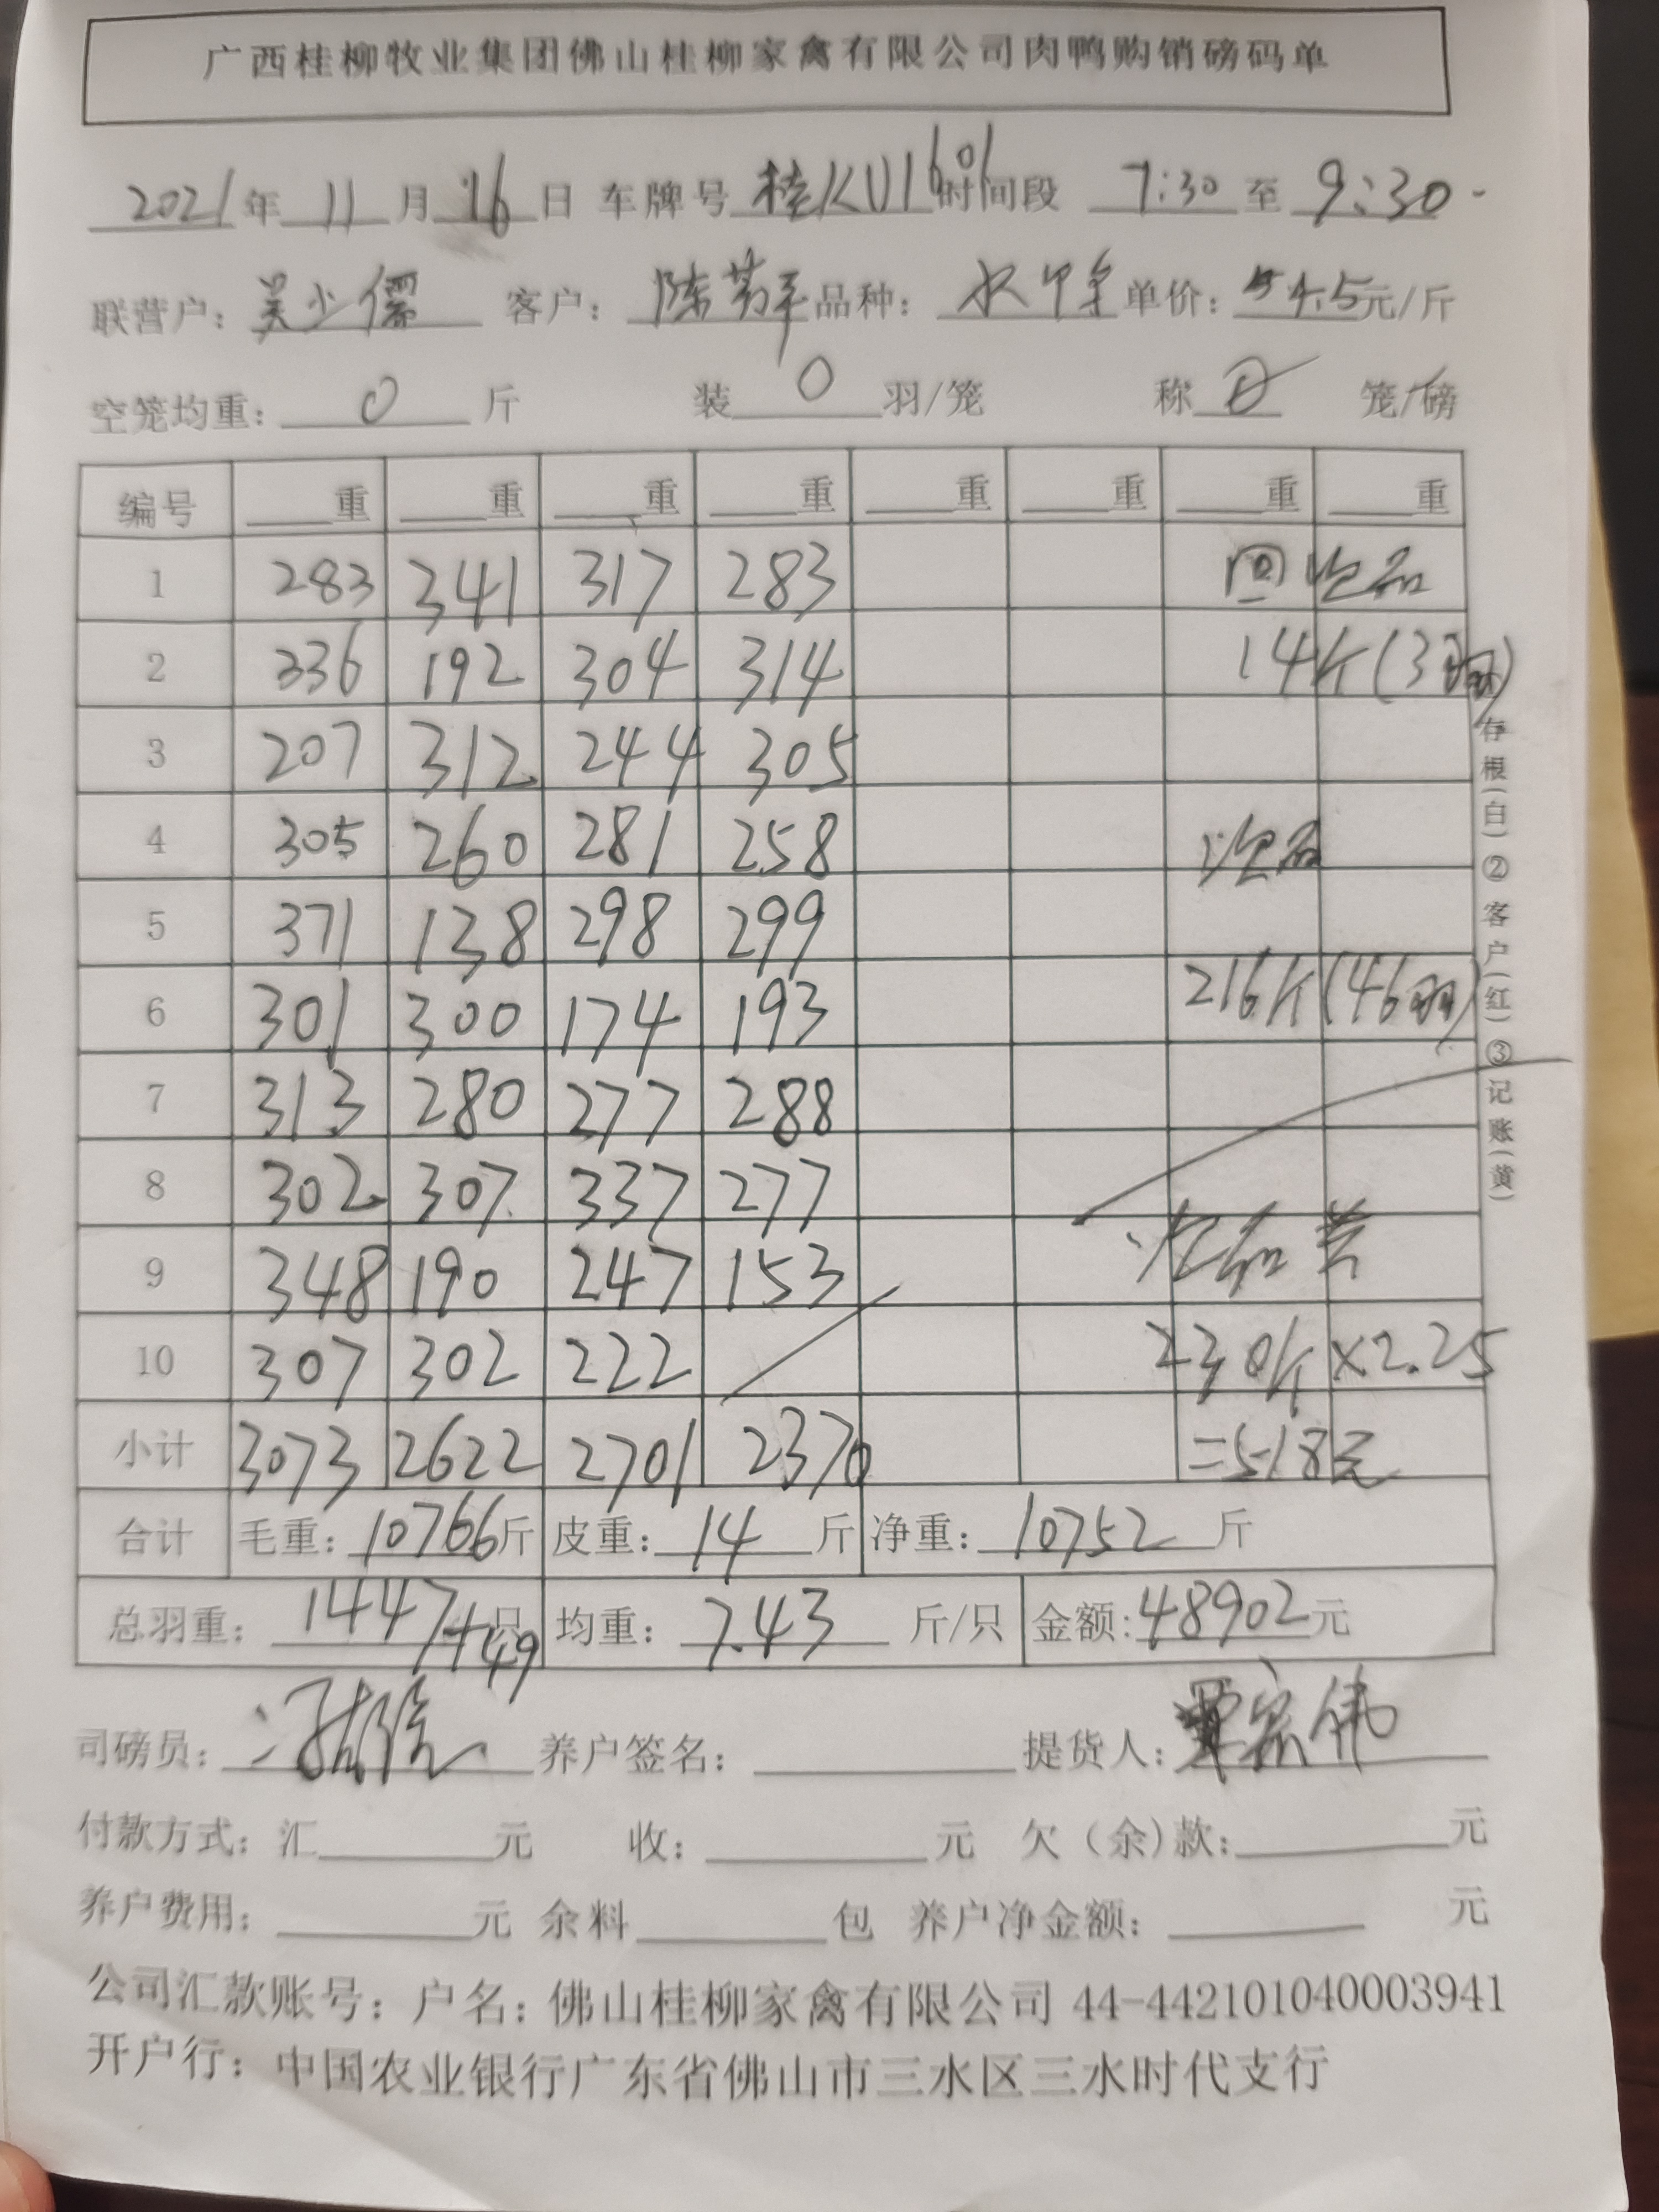 广西桂柳牧业集团佛山桂柳家禽有限公司肉鸭购销磅码单
2021年 11月 16日 车牌号 桂KU1601 时间段 7:30 至 9:30
联营户: 吴少儒 客户: 陈 平 品种: 水中 单价: 4.5元/斤
空笼均重: 0 斤 装 0 羽/笼 称 笼/磅
编号 重 重 重 重 重 重 重 重
1 283 341 317 283 回次品
2 336 192 304 314 14斤(3羽)
3 207 312 244 305
4 305 260 281 258 次品
5 371 138 298 299
6 301 300 174 193 216斤(46羽)
7 313 280 277 288
8 302 307 337 277
9 348 190 247 153 次品共
10 307 302 222 230斤×2.25
小计 3073 2622 2701 2370 =518元
合计 毛重: 10766斤 皮重: 14 斤 净重: 10752 斤
总羽重: 1447+49只 均重: 7.43 斤/只 金额: 48902元
司磅员: 养户签名: 提货人: 覃家伟
付款方式: 汇 元 收: 元 欠(余)款: 元
养户费用: 元 余料 包 养户净金额: 元
公司汇款账号: 户名: 佛山桂柳家禽有限公司 44-442101040003941
开户行: 中国农业银行广东省佛山市三水区三水时代支行
存根(白)②客户(红)③记账(黄)